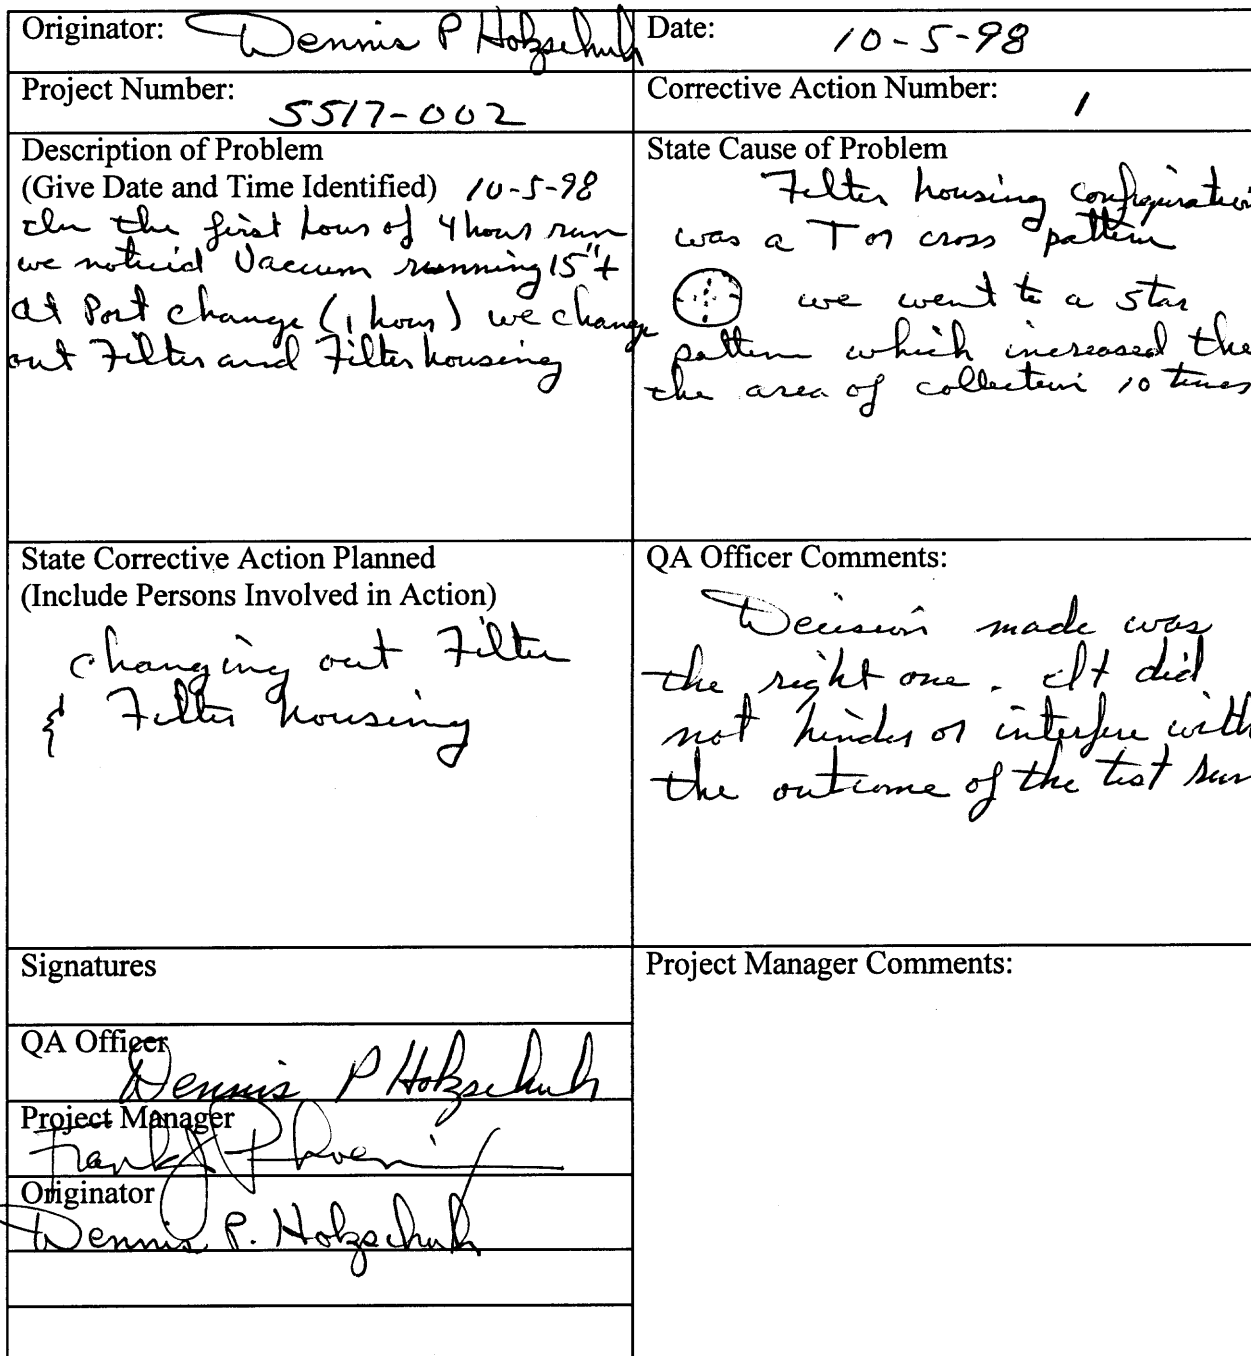 Originator: Dennis P Holzschuh
Date: 10-5-98
Project Number: 5517-002
Corrective Action Number: 1
Description of Problem
(Give Date and Time Identified) 10-5-98
In the first hour of 4 hour run
we noticed Vaccum running 15"+
at Port change (1 hour) we change
out Filter and Filter housing
State Cause of Problem
Filter housing configuration
was a T or cross pattern
we went to a star
pattern which increased the
the area of collection 10 times
State Corrective Action Planned
(Include Persons Involved in Action)
changing out Filter
& Filter housing
QA Officer Comments:
Decision made was
the right one. It did
not hinder or interfere with
the outcome of the test run
Signatures
QA Officer
Dennis P Holzschuh
Project Manager
Frank J Phoenix
Originator
Dennis P. Holzschuh
Project Manager Comments: